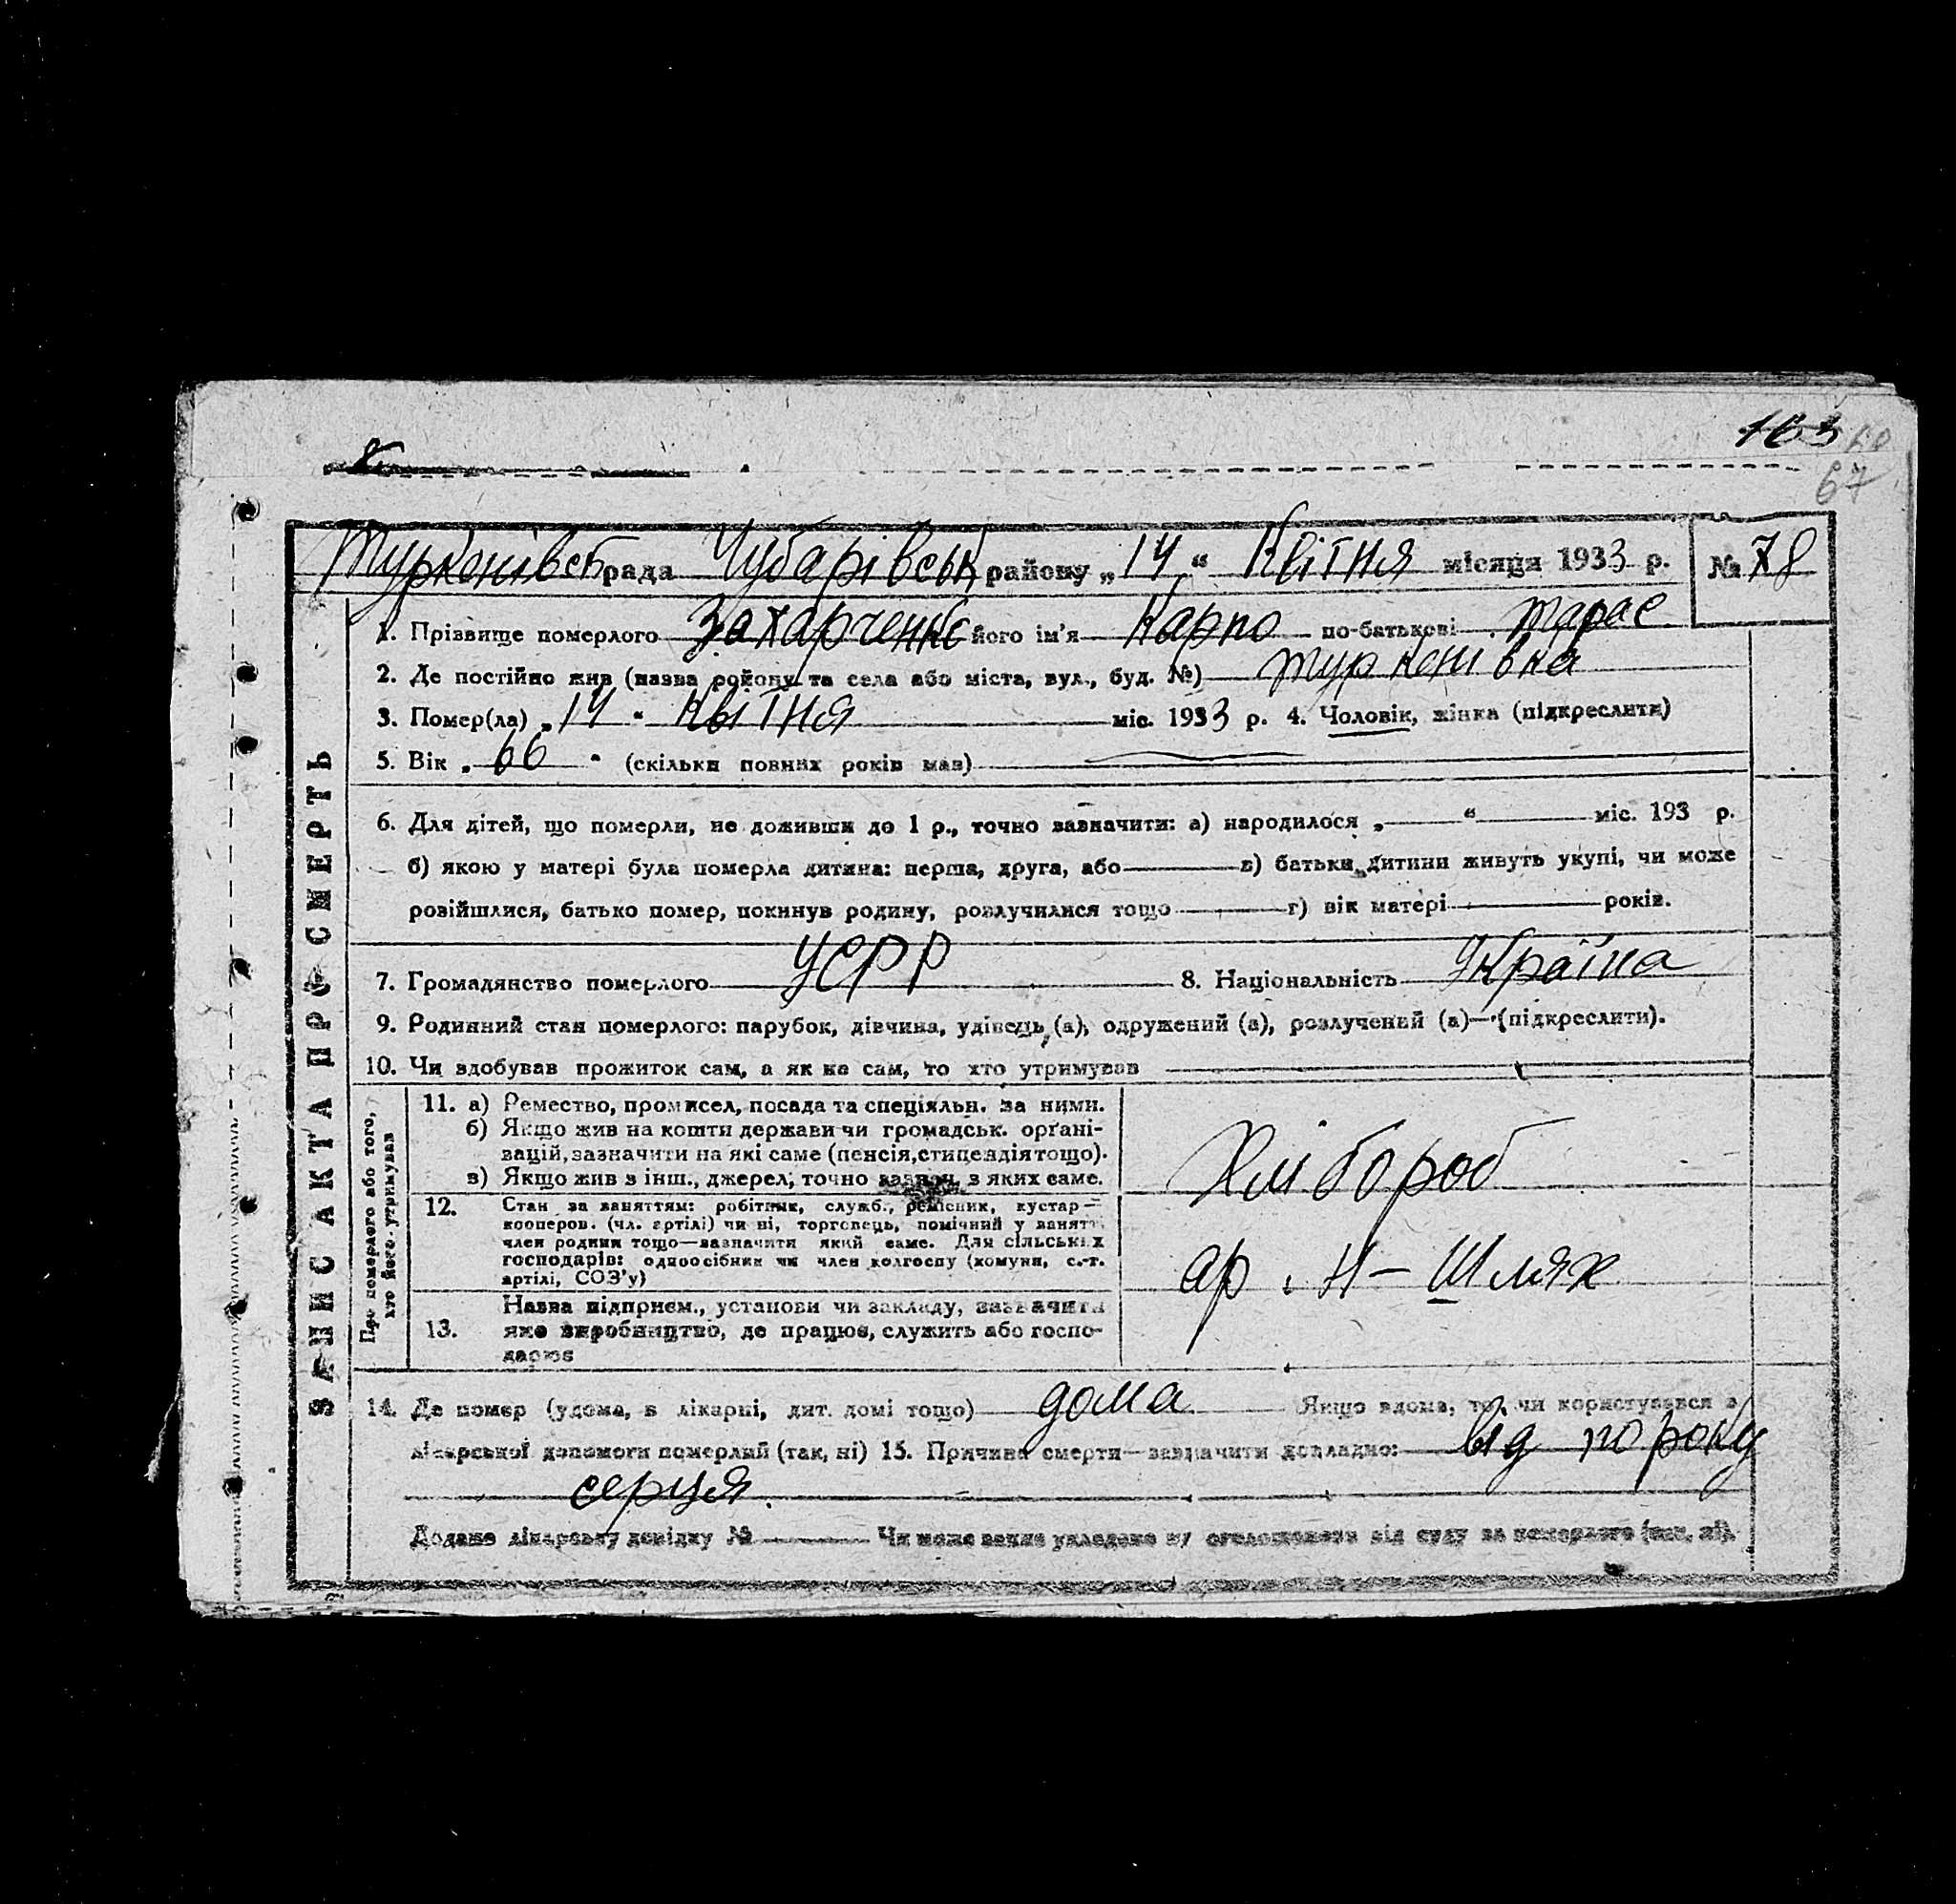 163
67
Туркенівськ рада Чубарівськ району „14" Квітня місяця 1933 р. № 78
ЗАПИС АКТА ПРО СМЕРТЬ
1. Прізвище померлого Захарченко його ім'я Карпо по-батькові Тарас
2. Де постійно жив (назва району та села або міста, вул., буд. №) Туркенівка
3. Помер(ла) „14" Квітня міс. 1933 р. 4. Чоловік, жінка (підкреслити)
5. Вік „66" (скільки повних років мав)
6. Для дітей, що померли, не доживши до 1 р., точно зазначити: а) народилося „ " міс. 193 р.
б) якою у матері була померла дитина: перша, друга, або в) батьки дитини живуть укупі, чи може
розійшлися, батько помер, покинув родину, розлучилися тощо г) вік матері років.
7. Громадянство померлого УСРР 8. Національність Україна
9. Родинний стан померлого: парубок, дівчина, удівець (а), одружений (а), розлучений (а)—(підкреслити).
10. Чи здобував прожиток сам, а як не сам, то хто утримував
Про померлого або того, хто його утримував
11. а) Ремество, промисел, посада та спеціяльн. за ними.
б) Якщо жив на кошти держави чи громадськ. органі-
зацій, зазначити на які саме (пенсія, стипендія тощо).
в) Якщо жив з інш., джерел, точно зазнач. з яких саме.
Хлібороб
12. Стан за заняттям: робітник, служб., ремісник, кустар—
кооперов. (чл. артілі) чи ні, торговець, помічний у занятті
член родини тощо—зазначити який саме. Для сільських
господарів: одноосібник чи член колгоспу (комуни, с.-г.
артілі, СОЗ'у)
ар. Н-Шлях
13. Назва підприєм., установи чи закладу, зазначити
яке виробництво, де працює, служить або госпо-
дарює
14. Де помер (удома, в лікарні, дит. домі тощо) дома Якщо вдома, то чи користувався з
лікарської допомоги померлий (так, ні) 15. Причина смерти—зазначити докладно: від пороку
серця.
Додано лікарську довідку № Чи може запис укладено на оголошення від суду за померлого (так, ні).